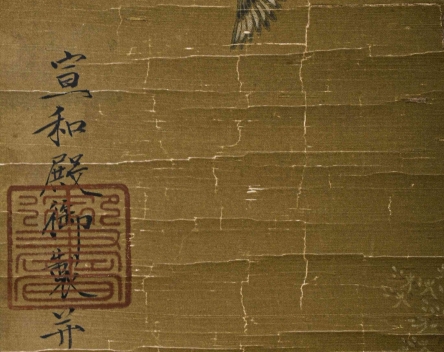 宣和殿御製并